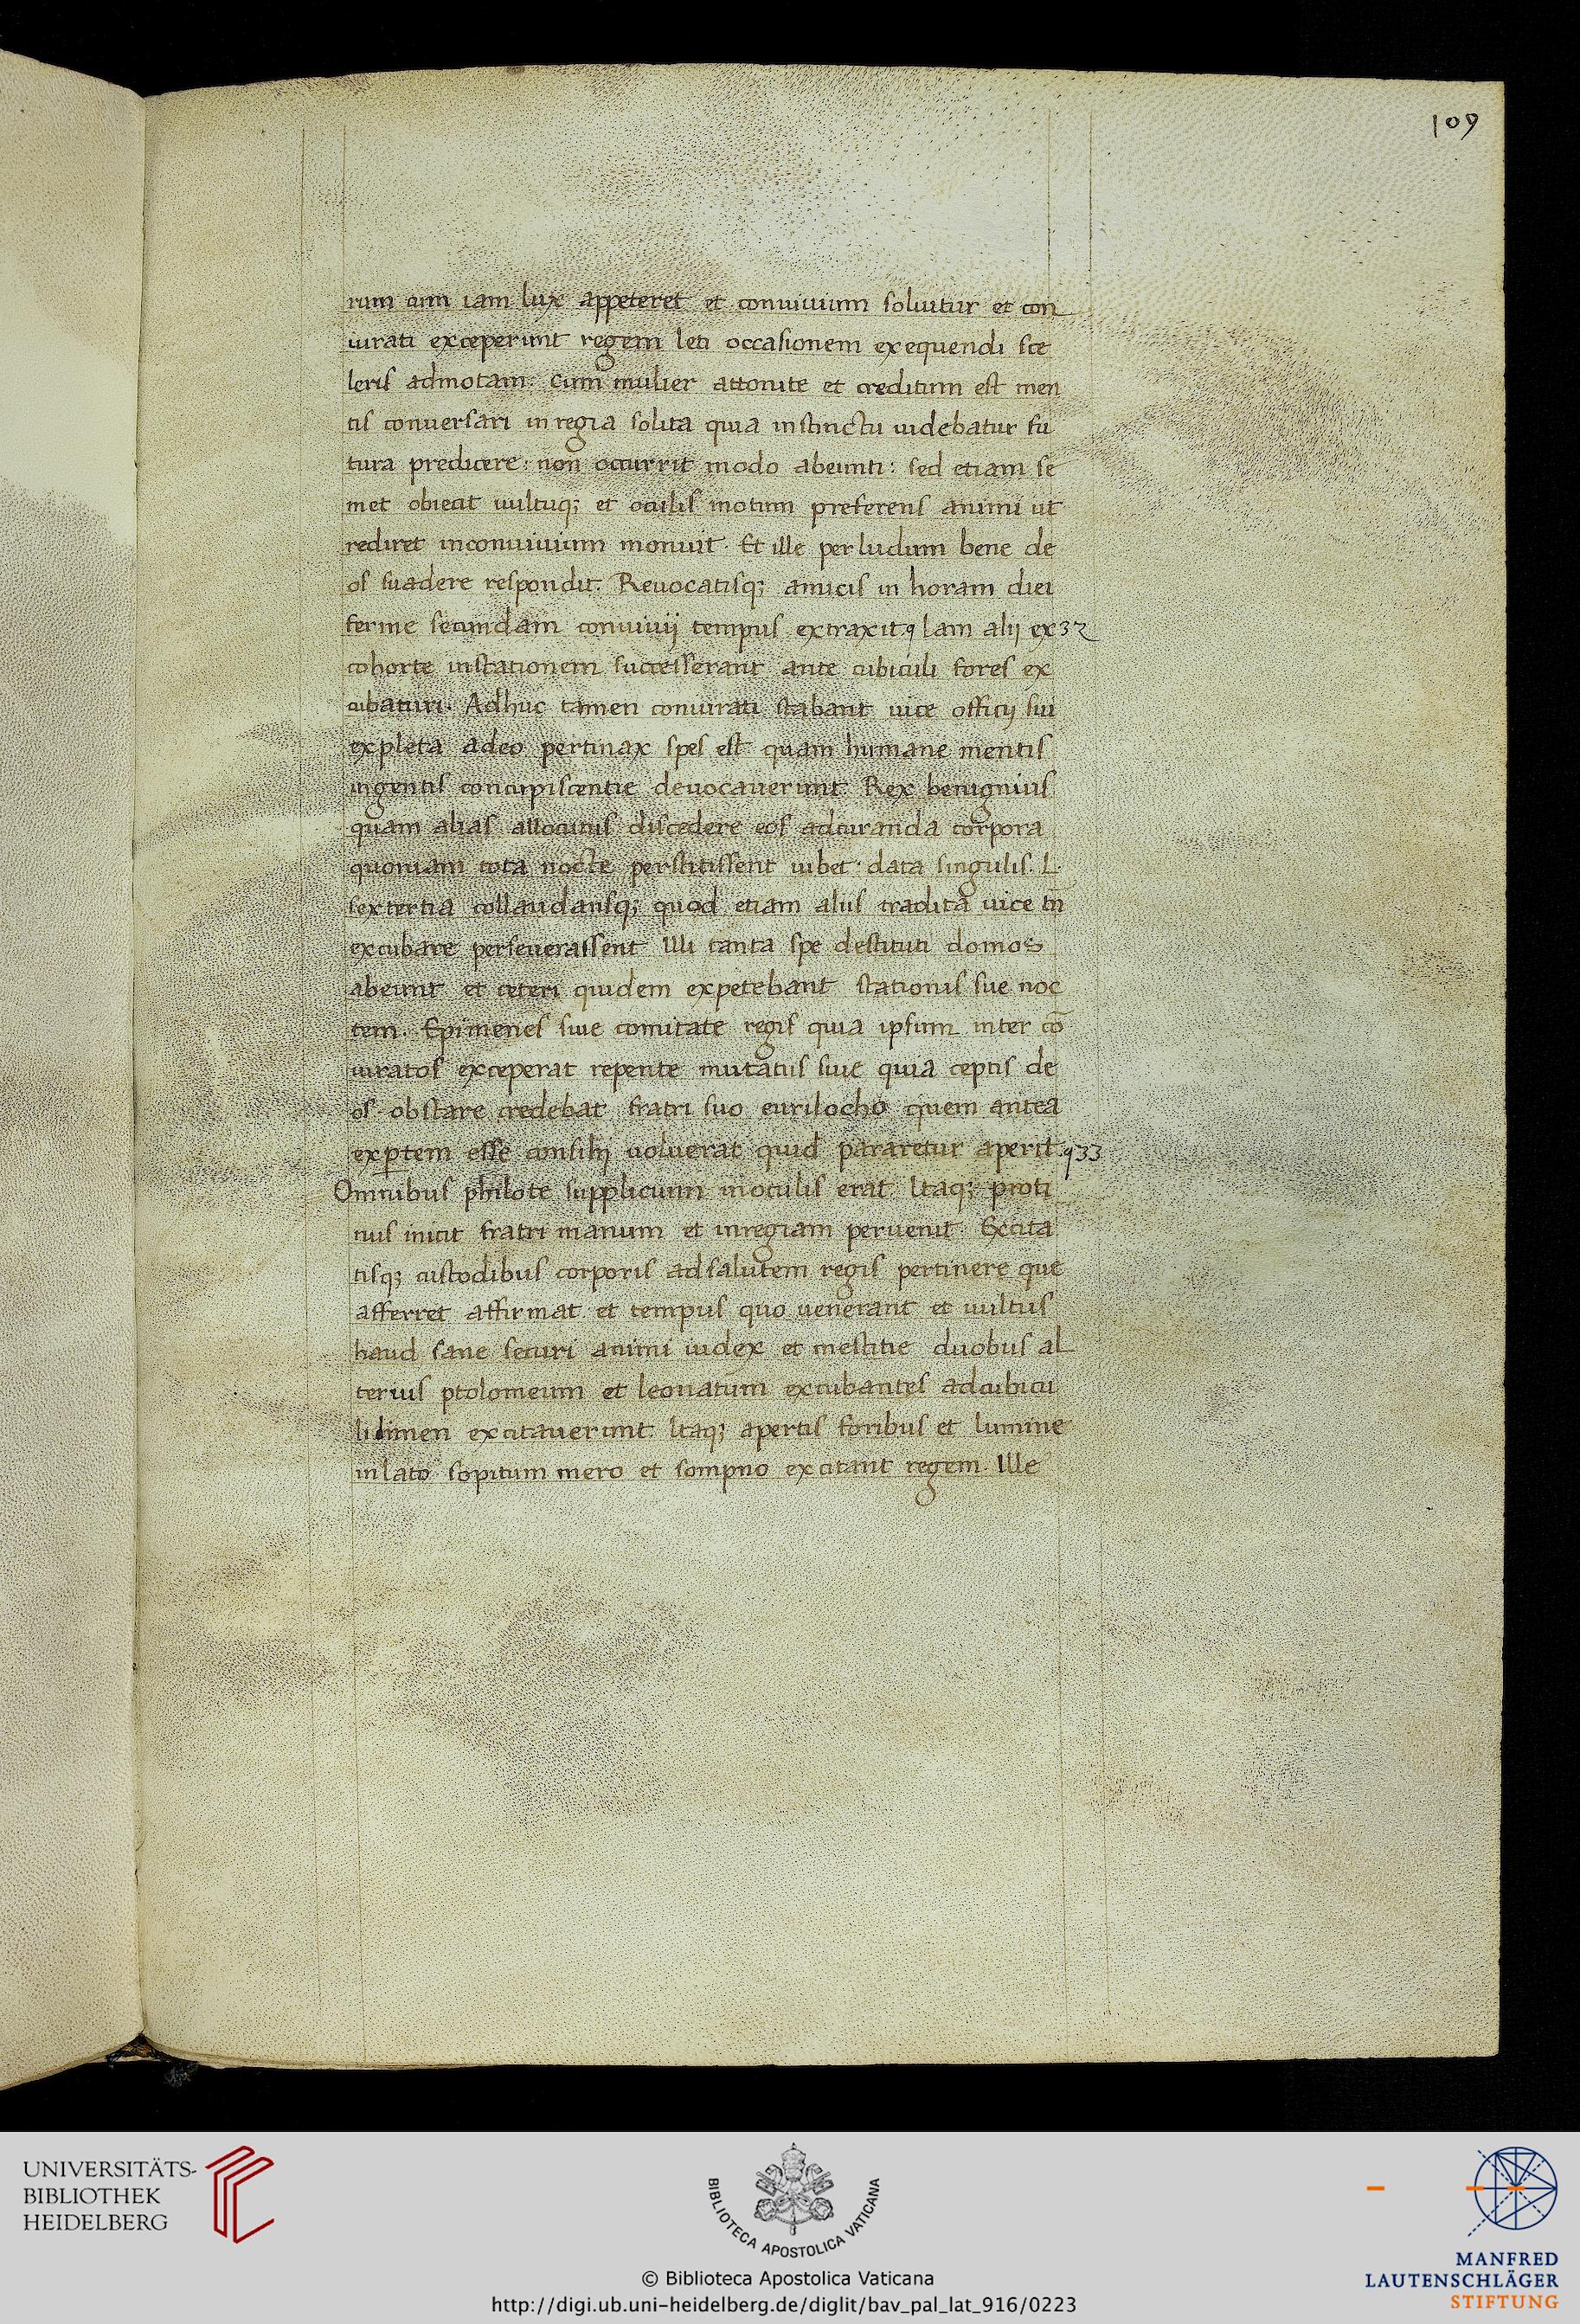 109
rum cum iam lux appeteret et conuiuium soluitur et con
iurati exceperunt regem leti occasionem exequendi sce
leris admotam. cum mulier attonite et creditum est men
tis conuersari in regia solita quia instinctu uidebatur fu
tura predicere: non occurrit modo abeunti: sed etiam se
met obiecit uultuq; et oculis motum preferens animi ut
rediret inconuiuium monuit. Et ille per ludum bene de
os suadere respondit. Reuocatisq; amicis in horam diei
ferme secundam conuiuij tempus extraxit. 9 Iam alij ex 32
cohorte instationem successerant ante cubiculi fores ex
cubaturi. Adhuc tamen coniurati stabant uice officij sui
expleta adeo pertinax spes est quam humane mentis
ingentis concupiscentie deuocauerunt. Rex benignius
quam alias allocutus discedere eos adcuranda corpora
quoniam tota nocte perstitissent iubet. data singulis. L.
sextertia collaudansq; quod etiam aliis tradita uice tn̄
excubare perseuerassent Illi tanta spe destituti domos
abeunt et ceteri quidem expetebant stationis sue noc
tem. Epimenes siue comitate regis quia ipsum inter cō
iuratos exceperat repente mutatus siue quia ceptis de
os obstare credebat fratri suo eurilocho quem antea
expertem esse consilij uoluerat quid pararetur aperit. 9 33
Omnibus philote supplicium inoculis erat Itaq; proti
nus inicit fratri manum et inregiam peruenit. Excita
tisq; custodibus corporis adsalutem regis pertinere que
afferret affirmat. et tempus quo uenerant et uultus
haud sane securi animi iudex et mestitie duobus al
terius ptolomeum et leonatum excubantes adcubicu
lilimen excitauerunt. Itaq; apertis foribus et lumine
inlato sopitum mero et sompno excitant regem. Ille
UNIVERSITÄTS-
BIBLIOTHEK
HEIDELBERG
BIBLIOTECA APOSTOLICA VATICANA
© Biblioteca Apostolica Vaticana
http://digi.ub.uni-heidelberg.de/diglit/bav_pal_lat_916/0223
MANFRED
LAUTENSCHLÄGER
STIFTUNG